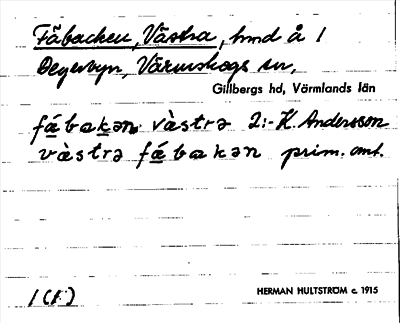 Fäbacken, Västra, hmd å 1
Degerbyn, Värmskogs sn,
Gillbergs hd, Värmlands län
fábakən vàstrə 2:- K. Andersson
vàstrə fábakən prim. ant.
1(F)
HERMAN HULTSTRÖM c. 1915